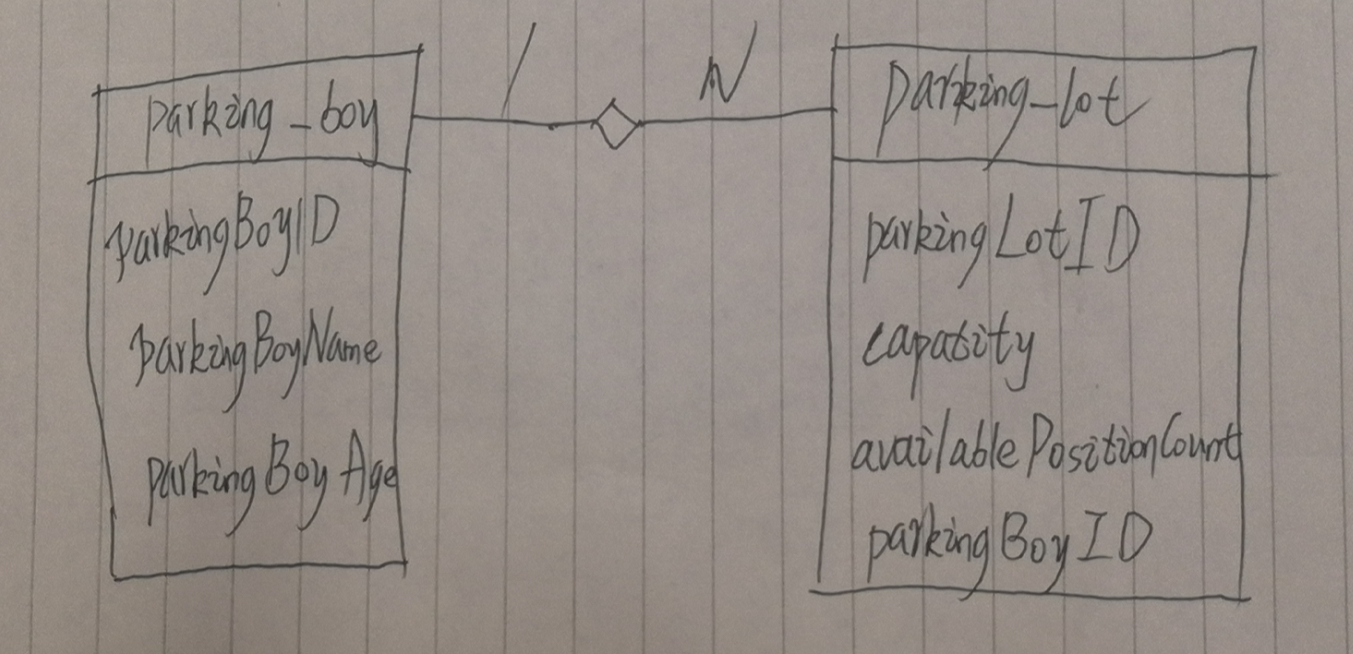 parking_boy
1
N
parking_lot
parkingBoyID
parkingBoyName
parkingBoyAge
parkingLotID
capasity
availablePositionCount
parkingBoyID